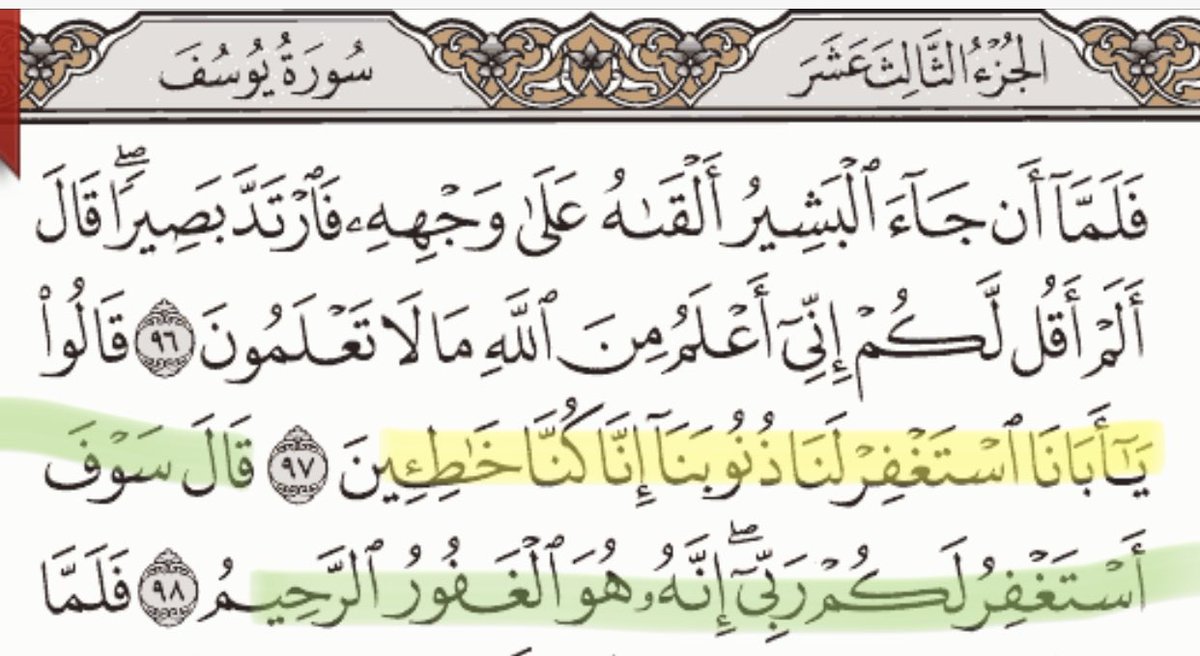 الجُزْءُ الثَّالِثَ عَشَرَ
سُورَةُ يُوسُفَ
فَلَمَّآ أَن جَآءَ ٱلْبَشِيرُ أَلْقَىٰهُ عَلَىٰ وَجْهِهِۦ فَٱرْتَدَّ بَصِيرًاۖ قَالَ
أَلَمْ أَقُل لَّكُمْ إِنِّىٓ أَعْلَمُ مِنَ ٱللَّهِ مَا لَا تَعْلَمُونَ ٩٦ قَالُوا۟
يَـٰٓأَبَانَا ٱسْتَغْفِرْ لَنَا ذُنُوبَنَآ إِنَّا كُنَّا خَـٰطِـِٔينَ ٩٧ قَالَ سَوْفَ
أَسْتَغْفِرُ لَكُمْ رَبِّىٓۖ إِنَّهُۥ هُوَ ٱلْغَفُورُ ٱلرَّحِيمُ ٩٨ فَلَمَّا